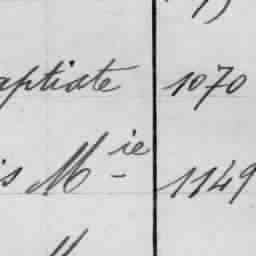 aptiste 1070
is M^ie 1149